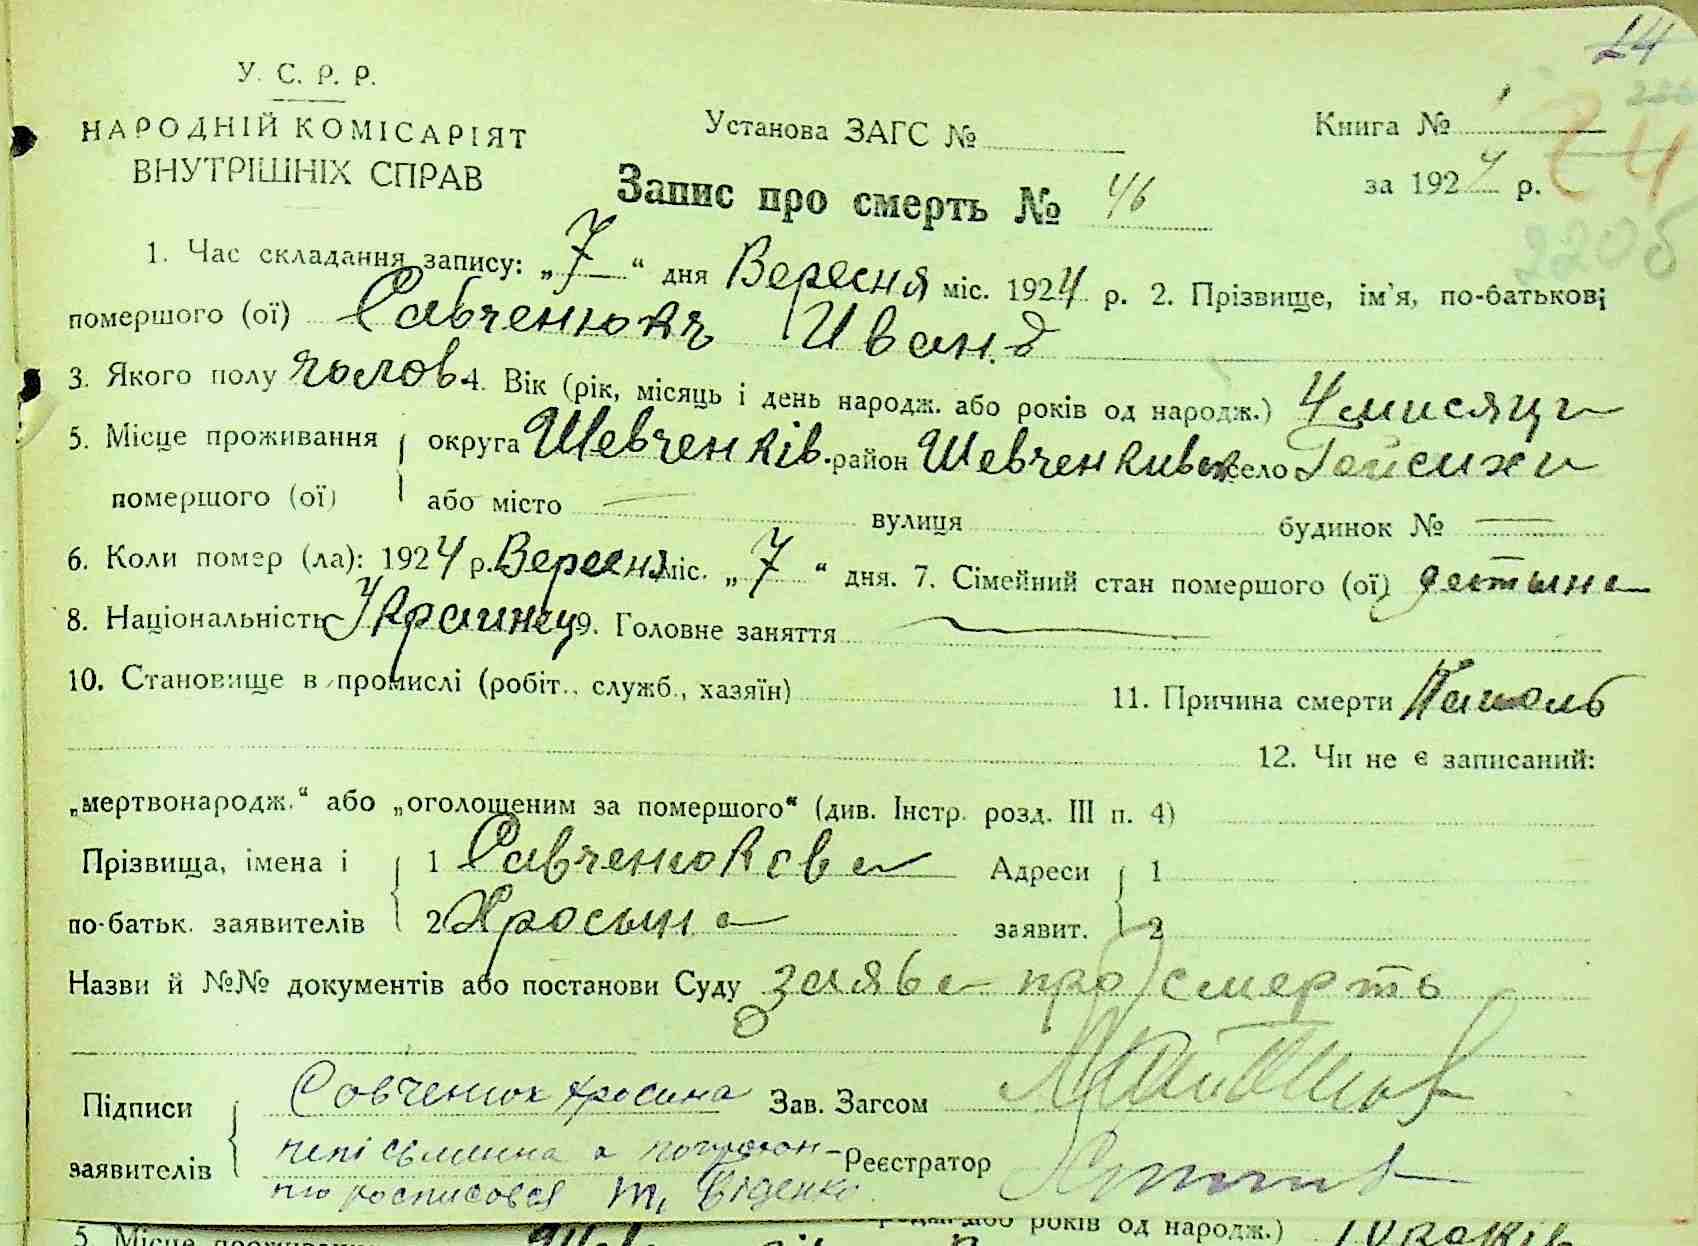 24
У. С. Р. Р.
НАРОДНІЙ КОМІСАРІЯТ
ВНУТРІШНІХ СПРАВ
Установа ЗАГС №
Книга № 1
24
за 1924 р.
220б
Запис про смерть № 46
1. Час складання запису: „7“ дня Вересня міс. 1924 р. 2. Прізвище, ім'я, по-батькові
помершого (ої) Савченюкъ Иванъ
3. Якого полу чолов 4. Вік (рік, місяць і день народж. або років од народж.) 4 мисяци
5. Місце проживання округа Шевченків. район Шевченкивск село Гейсихи
помершого (ої) або місто — вулиця будинок № —
6. Коли помер (ла): 1924 р. Вересня міс. „7“ дня. 7. Сімейний стан помершого (ої) детына
8. Національність Украинец 9. Головне заняття —
10. Становище в промислі (робіт., служб., хазяїн) 11. Причина смерти
12. Чи не є записаний:
„мертвонародж.“ або „оголощеним за помершого“ (див. Інстр. розд. III п. 4)
Прізвища, імена і 1 Савченюкова Адреси 1
по-батьк. заявителів 2 Хросына заявит. 2
Назви й №№ документів або постанови Суду заява про смерть
Підписи Совченюк Хросина Зав. Загсом
заявителів непісьмина а Реєстратор
росписовся Т. Віденко
5. Місце проживан Шев або років од народж.) 10 років